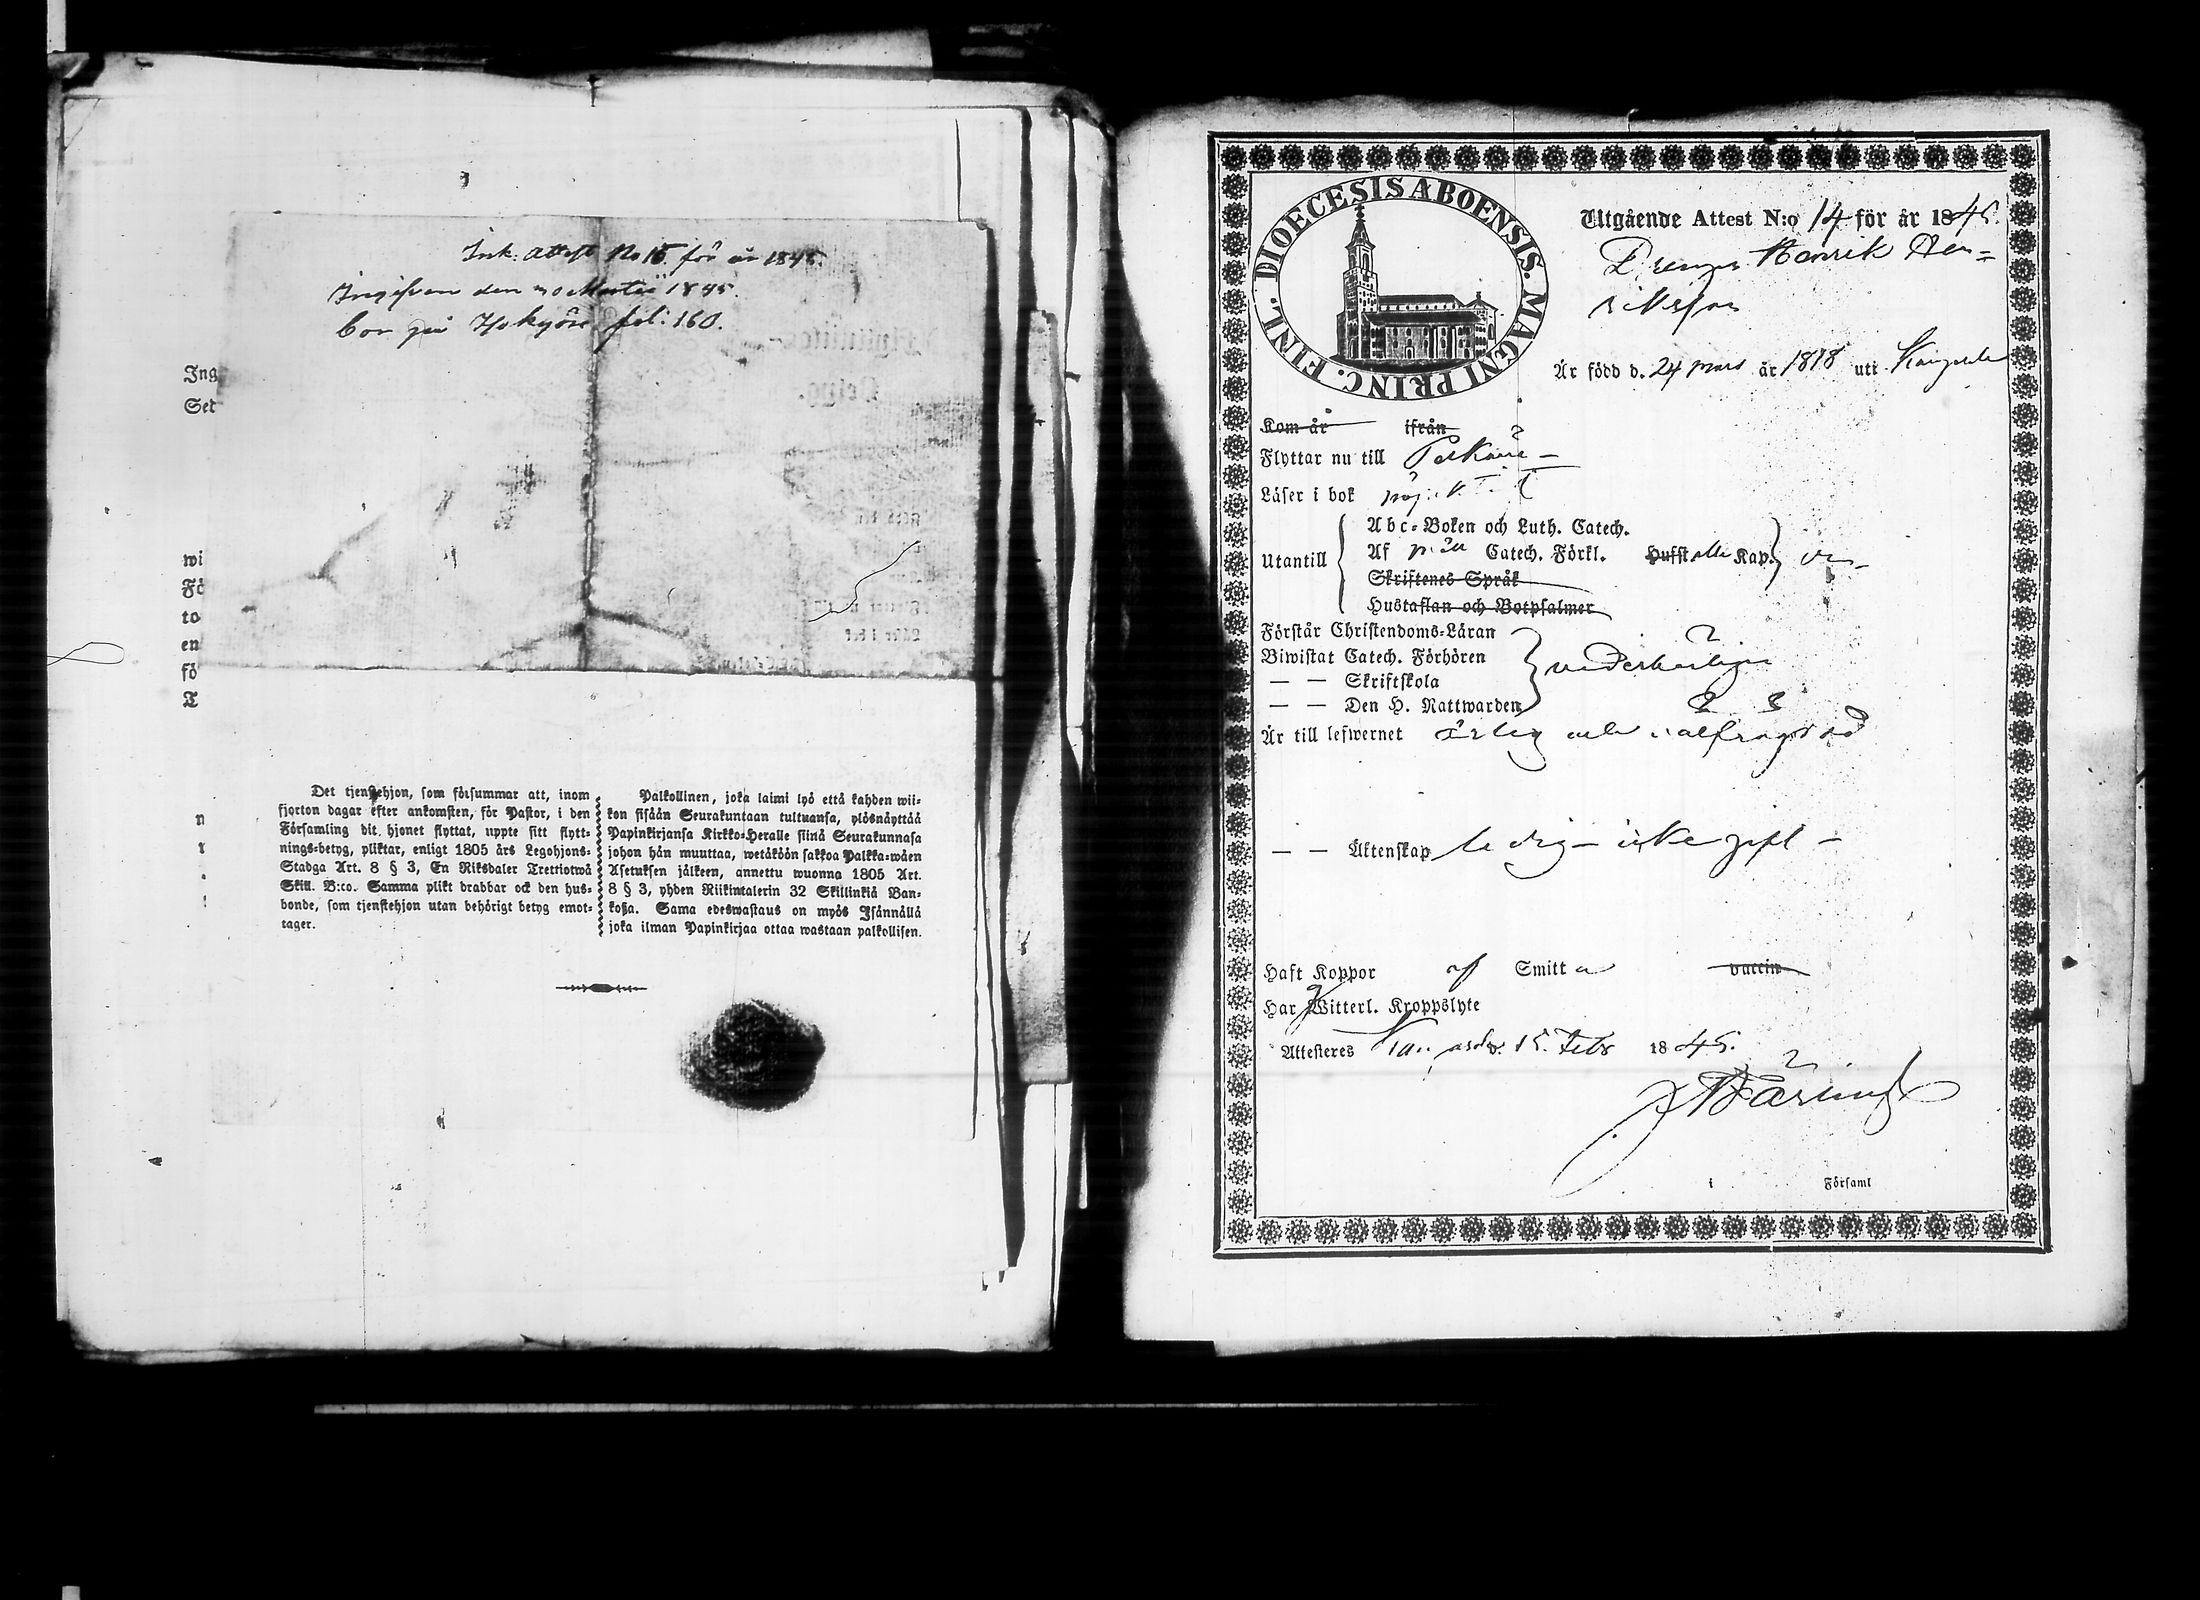 Ink. Attest No 15 för år 1845.
Ingifven den 30 Martii 1845.
bor på fol: 160.
Ing
Set
wi
Fö
to
en
fö
T
Det tjenstehjon, som försummar att, inom
fjorton dagar efter ankomsten, för Pastor, i den
Församling dit hjonet flyttat, uppte sitt flytt-
nings-betyg, pliktar, enligt 1805 års Legohjons-
Stadga Art. 8 § 3, En Riksdaler Trettiotwå
Skill. B:co. Samma plikt drabbar ock den hus-
bonde, som tjenstehjon utan behörigt betyg emot-
tager.
Palkollinen, joka laimi lyö että kahden wii-
kon sisään Seurakuntaan tultuansa, ylösnäyttää
Papinkirjansa Kirkko-Heralle siinä Seurakunnasa
johon hän muuttaa, wetäköön sakkoa Palkka-wäen
Asetuksen jälkeen, annettu wuonna 1805 Art.
8 § 3, yhden Riikintalerin 32 Skillinkiä Ban-
koßa. Sama edeswastaus on myös Isännällä
joka ilman Papinkirjaa ottaa wastaan palkollisen.
FINL. DIOECESIS ABOENSIS. MAGNI PRINC.
Utgående Attest N:o 14 för år 1845.
Drengen Henrik Hen-
riksson
Är född d. 24 mars år 1818 uti Kangasala
Kom år ifrån
Flyttar nu till Pelkäne
Läser i bok
Utantill
Abc-Boken och Luth. Catech.
Af Catech. Förkl. Hufst. alla Kap.
Skriftenes Språk
Hustaflan och Botpsalmer
Förstår Christendoms-Läran
Biwistat Catech. Förhören
— — Skriftskola
— — Den H. Nattwarden
vederbörligen
Är till lefwernet ärlig och välfrägdad
— — Äktenskap ledig icke gift
Haft Koppor af Smitta vaccin
Har Witterl. Kroppslyte
Attesteres d. 15 Febr 1845.
i Församl